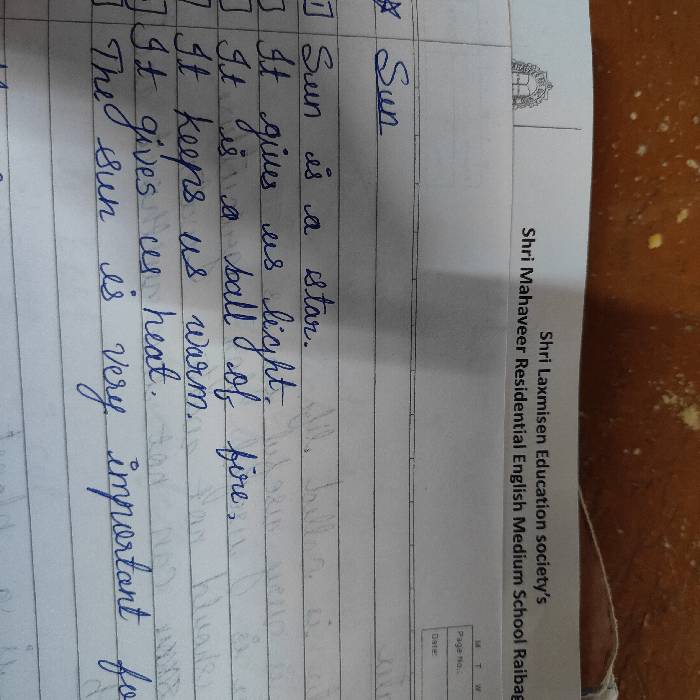 Shri Laxmisen Education society's
Shri Mahaveer Residential English Medium School Raibag
M T W
Page No.:
Date:
* Sun
1] Sun is a star.
] It gives us light.
] It is a ball of fire,
] It keeps us warm.
] It gives us heat.
] The sun is very important fo